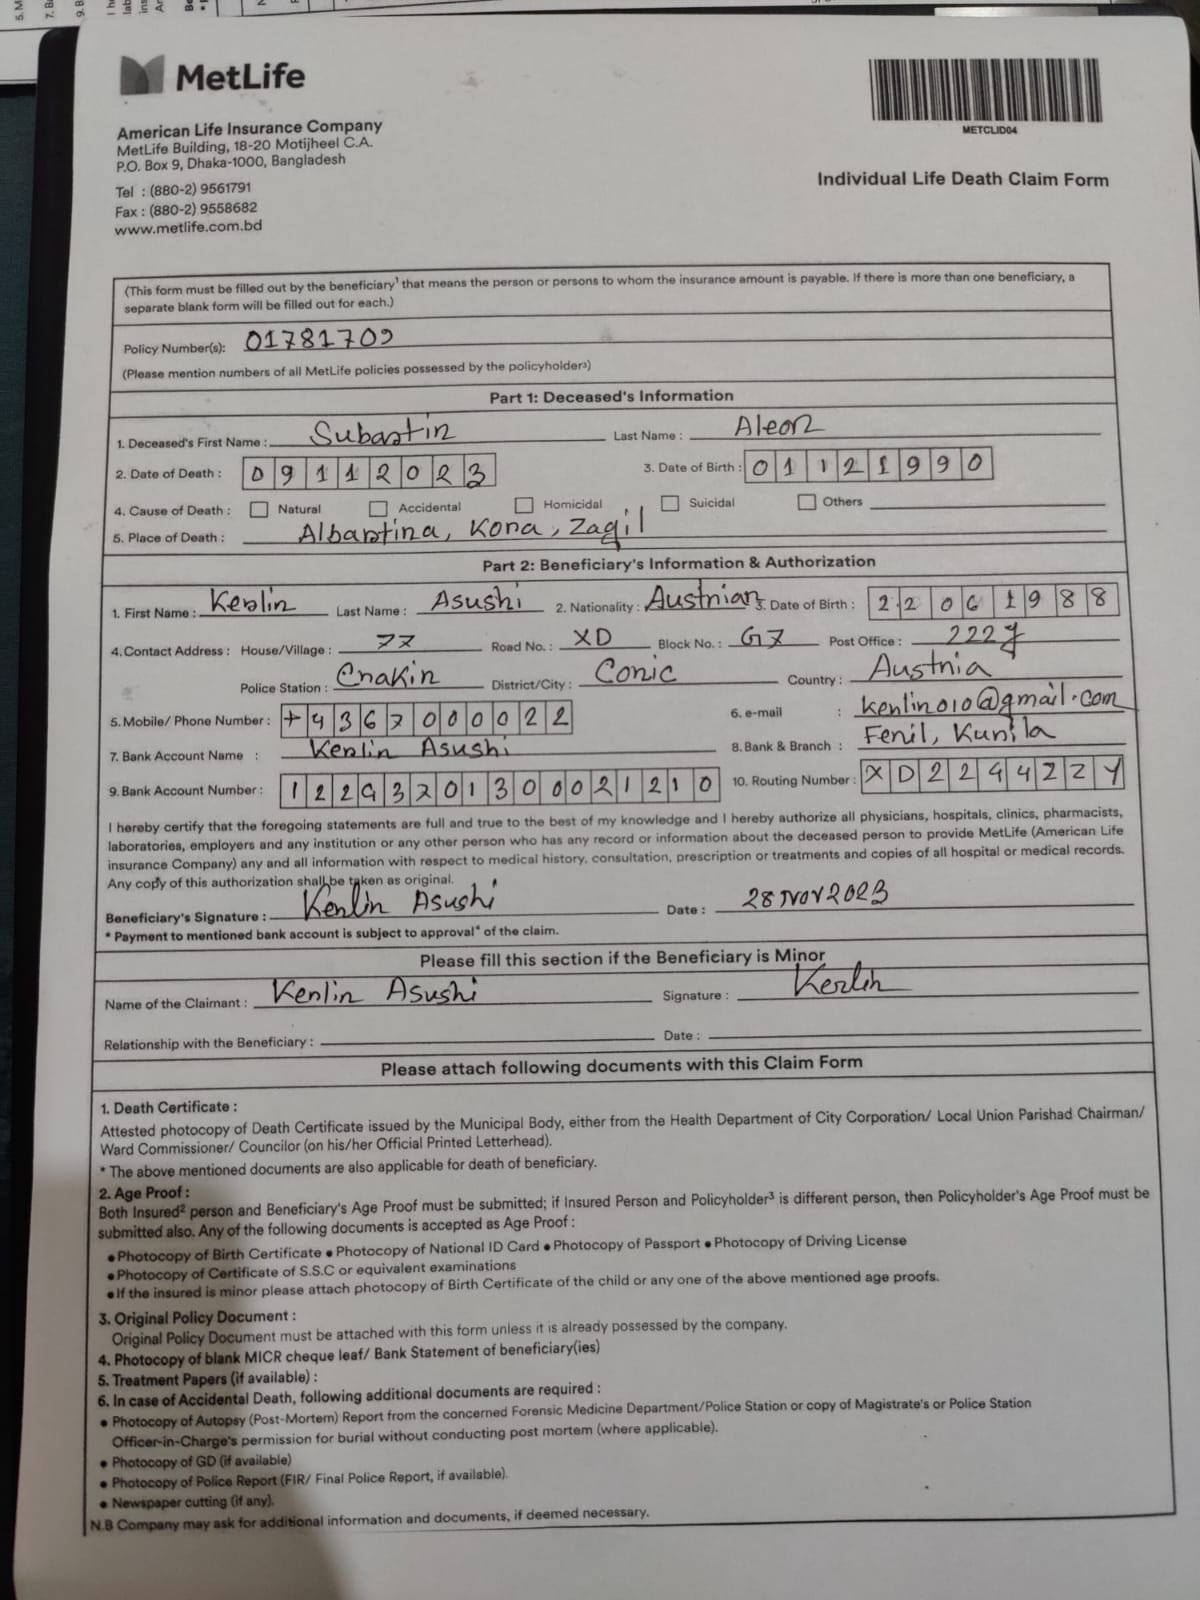 MetLife
METCLID04
American Life Insurance Company
MetLife Building, 18-20 Motijheel C.A.
P.O. Box 9, Dhaka-1000, Bangladesh
Tel : (880-2) 9561791
Fax : (880-2) 9558682
www.metlife.com.bd
Individual Life Death Claim Form
(This form must be filled out by the beneficiary¹ that means the person or persons to whom the insurance amount is payable. If there is more than one beneficiary, a
separate blank form will be filled out for each.)
Policy Number(s): 01781709
(Please mention numbers of all MetLife policies possessed by the policyholder³)
Part 1: Deceased's Information
1. Deceased's First Name : Subastin Last Name : Aleon
2. Date of Death : 09112023 3. Date of Birth : 01121990
4. Cause of Death : Natural Accidental Homicidal Suicidal Others
5. Place of Death : Albastina, Kona, Zagil
Part 2: Beneficiary's Information & Authorization
1. First Name : Kenlin Last Name : Asushi 2. Nationality : Austrian 3. Date of Birth : 22061988
4. Contact Address : House/Village : 77 Road No. : XD Block No. : G7 Post Office :
Police Station : Enakin District/City : Conic Country : Austria
5. Mobile/ Phone Number : +4367000022 6. e-mail : kenlin010@gmail.com
7. Bank Account Name : Kenlin Asushi 8. Bank & Branch : Fenil, Kunila
9. Bank Account Number : 10. Routing Number :
I hereby certify that the foregoing statements are full and true to the best of my knowledge and I hereby authorize all physicians, hospitals, clinics, pharmacists,
laboratories, employers and any institution or any other person who has any record or information about the deceased person to provide MetLife (American Life
insurance Company) any and all information with respect to medical history, consultation, prescription or treatments and copies of all hospital or medical records.
Any copy of this authorization shall be taken as original.
Beneficiary's Signature : Kenlin Asushi Date : 28 Nov 2023
* Payment to mentioned bank account is subject to approval⁴ of the claim.
Please fill this section if the Beneficiary is Minor
Name of the Claimant : Kenlin Asushi Signature : Kenlin
Relationship with the Beneficiary : Date :
Please attach following documents with this Claim Form
1. Death Certificate :
Attested photocopy of Death Certificate issued by the Municipal Body, either from the Health Department of City Corporation/ Local Union Parishad Chairman/
Ward Commissioner/ Councilor (on his/her Official Printed Letterhead).
* The above mentioned documents are also applicable for death of beneficiary.
2. Age Proof :
Both Insured² person and Beneficiary's Age Proof must be submitted; if Insured Person and Policyholder³ is different person, then Policyholder's Age Proof must be
submitted also. Any of the following documents is accepted as Age Proof :
● Photocopy of Birth Certificate ● Photocopy of National ID Card ● Photocopy of Passport ● Photocopy of Driving License
● Photocopy of Certificate of S.S.C or equivalent examinations
● If the insured is minor please attach photocopy of Birth Certificate of the child or any one of the above mentioned age proofs.
3. Original Policy Document :
Original Policy Document must be attached with this form unless it is already possessed by the company.
4. Photocopy of blank MICR cheque leaf/ Bank Statement of beneficiary(ies)
5. Treatment Papers (if available) :
6. In case of Accidental Death, following additional documents are required :
● Photocopy of Autopsy (Post-Mortem) Report from the concerned Forensic Medicine Department/Police Station or copy of Magistrate's or Police Station
Officer-in-Charge's permission for burial without conducting post mortem (where applicable).
● Photocopy of GD (if available)
● Photocopy of Police Report (FIR/ Final Police Report, if available).
● Newspaper cutting (if any).
N.B Company may ask for additional information and documents, if deemed necessary.